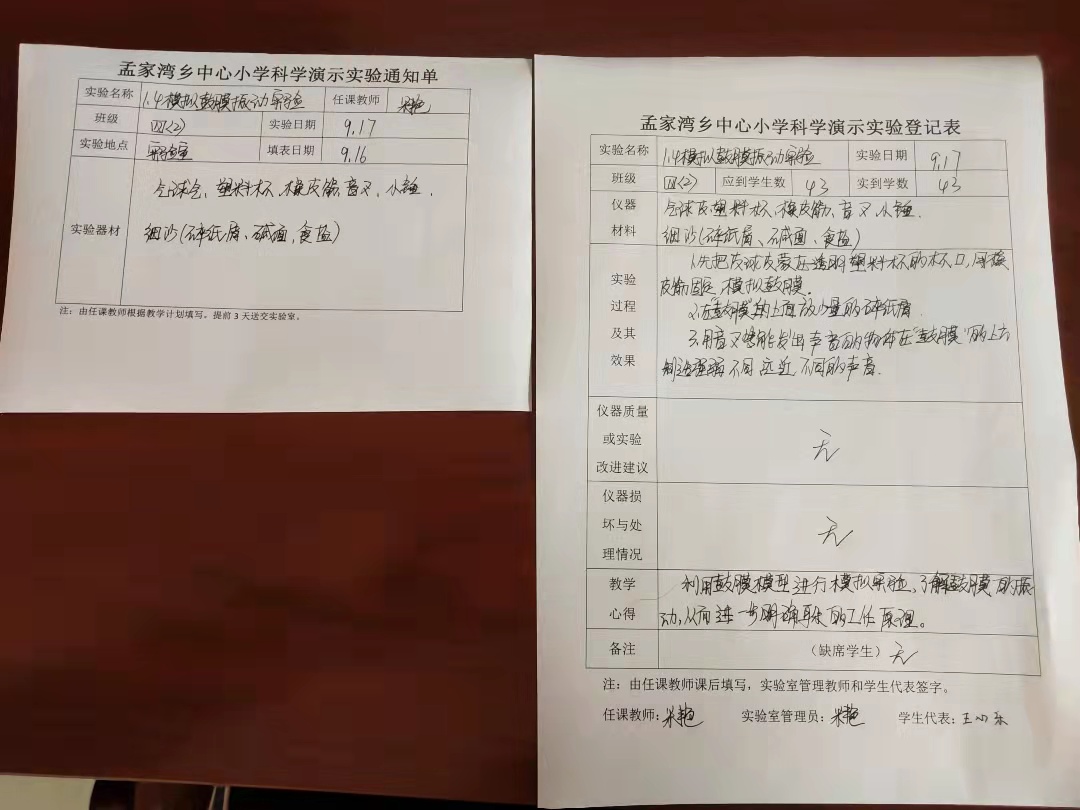 孟家湾乡中心小学科学演示实验通知单
实验名称 1.4模拟鼓膜振动实验 任课教师
班级 四(2) 实验日期 9.17
实验地点 实验室 填表日期 9.16
实验器材
气球皮、塑料杯、橡皮筋、音叉、小锤.
细沙(碎纸屑、碱面、食盐)
注:由任课教师根据教学计划填写,提前3天送交实验室。
孟家湾乡中心小学科学演示实验登记表
实验名称 1.4模拟鼓膜振动实验 实验日期 9.17
班级 四(2) 应到学生数 43 实到学数 43
仪器材料
气球皮、塑料杯、橡皮筋、音叉、小锤.
细沙(碎纸屑、碱面、食盐)
实验过程及其效果
1.先把气球皮蒙在透明塑料杯的杯口,用橡
皮筋固定,模拟鼓膜.
2.在"鼓膜"的上面放少量的碎纸屑.
3.用音叉等能发出声音的物体在"鼓膜"的上方
制造强弱不同远近不同的声音.
仪器质量或实验改进建议 无
仪器损坏与处理情况 无
教学心得
利用鼓膜模型进行模拟实验,了解鼓膜的振
动,从而进一步明确耳朵的工作原理。
备注 (缺席学生) 无
注:由任课教师课后填写,实验室管理教师和学生代表签字。
任课教师: 实验室管理员: 学生代表:王小乐